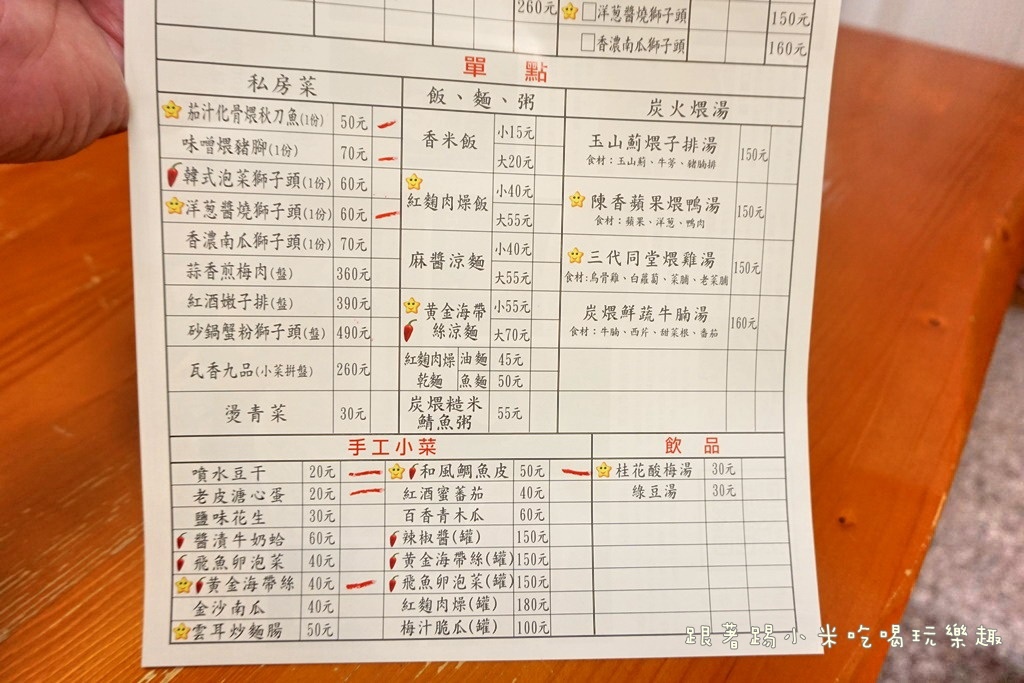 260元
洋蔥醬燒獅子頭 150元
香濃南瓜獅子頭 160元
單點
私房菜
茄汁化骨煨秋刀魚(1份) 50元
味噌煨豬腳(1份) 70元
韓式泡菜獅子頭(1份) 60元
洋蔥醬燒獅子頭(1份) 60元
香濃南瓜獅子頭(1份) 70元
蒜香煎梅肉(盤) 360元
紅酒嫩子排(盤) 390元
砂鍋蟹粉獅子頭(盤) 490元
瓦香九品(小菜拼盤) 260元
燙青菜 30元
飯、麵、粥
香米飯 小15元
大20元
紅麴肉燥飯 小40元
大55元
麻醬涼麵 小40元
大55元
黃金海帶
絲涼麵
小55元
大70元
紅麴肉燥 油麵 45元
乾麵 魚麵 50元
炭煨糙米
鯖魚粥
55元
炭火煨湯
玉山薊煨子排湯 150元
食材：玉山薊、牛蒡、豬腩排
陳香蘋果煨鴨湯 150元
食材：蘋果、洋蔥、鴨肉
三代同堂煨雞湯 150元
食材:烏骨雞、白蘿蔔、菜脯、老菜脯
炭煨鮮蔬牛腩湯 160元
食材：牛腩、西芹、甜菜根、番茄
手工小菜
噴水豆干 20元
老皮溏心蛋 20元
鹽味花生 30元
醬漬牛奶蛤 60元
飛魚卵泡菜 40元
黃金海帶絲 40元
金沙南瓜 40元
雲耳炒麵腸 50元
和風鯛魚皮 50元
紅酒蜜蕃茄 40元
百香青木瓜 60元
辣椒醬(罐) 150元
黃金海帶絲(罐) 150元
飛魚卵泡菜(罐) 150元
紅麴肉燥(罐) 180元
梅汁脆瓜(罐) 100元
飲品
桂花酸梅湯 30元
綠豆湯 30元
跟著踢小米吃喝玩樂趣